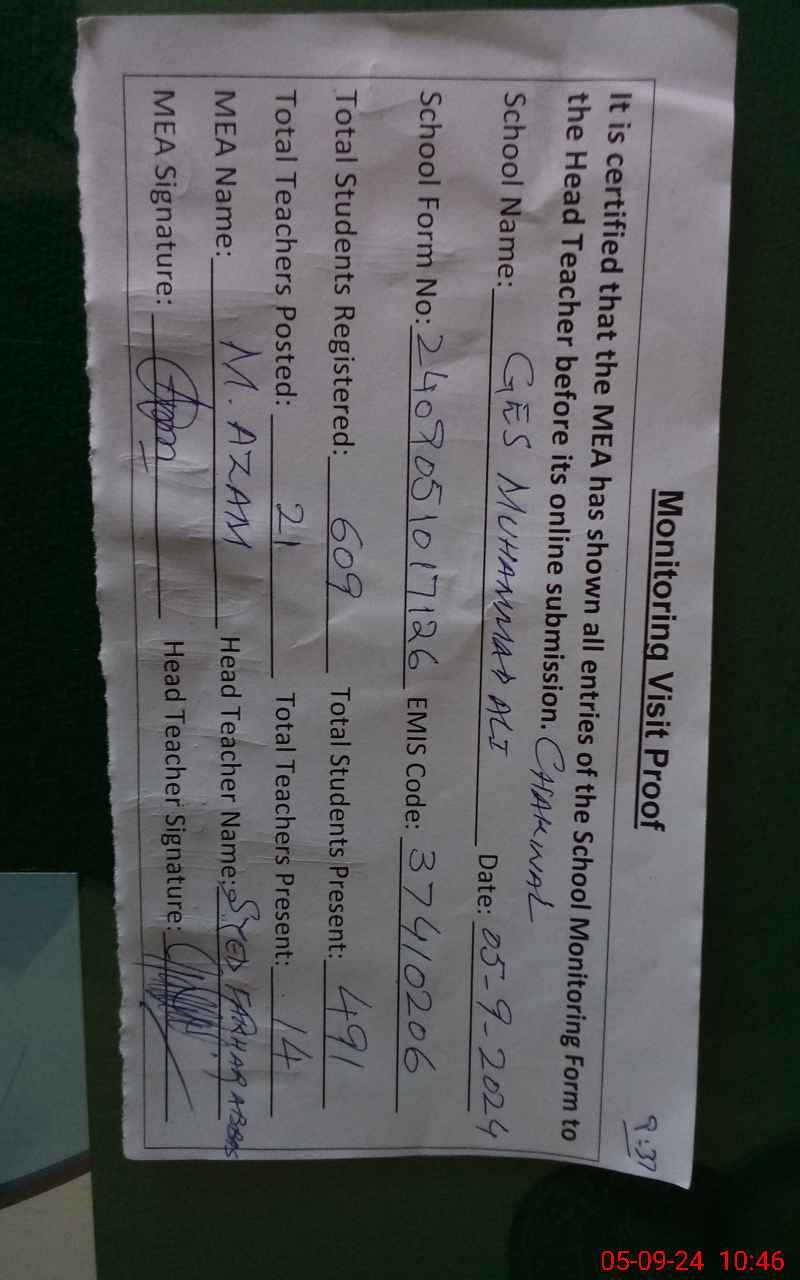 9:37
Monitoring Visit Proof
It is certified that the MEA has shown all entries of the School Monitoring Form to
the Head Teacher before its online submission. CHAKWAL
School Name: GES MUHAMMAD ALI Date: 05-9-2024
School Form No: 2409051017126 EMIS Code: 37410206
Total Students Registered: 609 Total Students Present: 491
Total Teachers Posted: 21 Total Teachers Present: 14
MEA Name: M. AZAM Head Teacher Name: SYED FAKHAR ABBAS
MEA Signature: Head Teacher Signature:
05-09-24 10:46